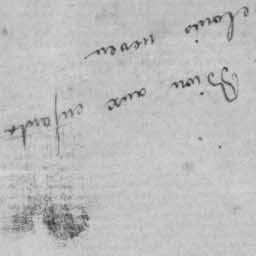 Bion aux enfants
elouis neveu